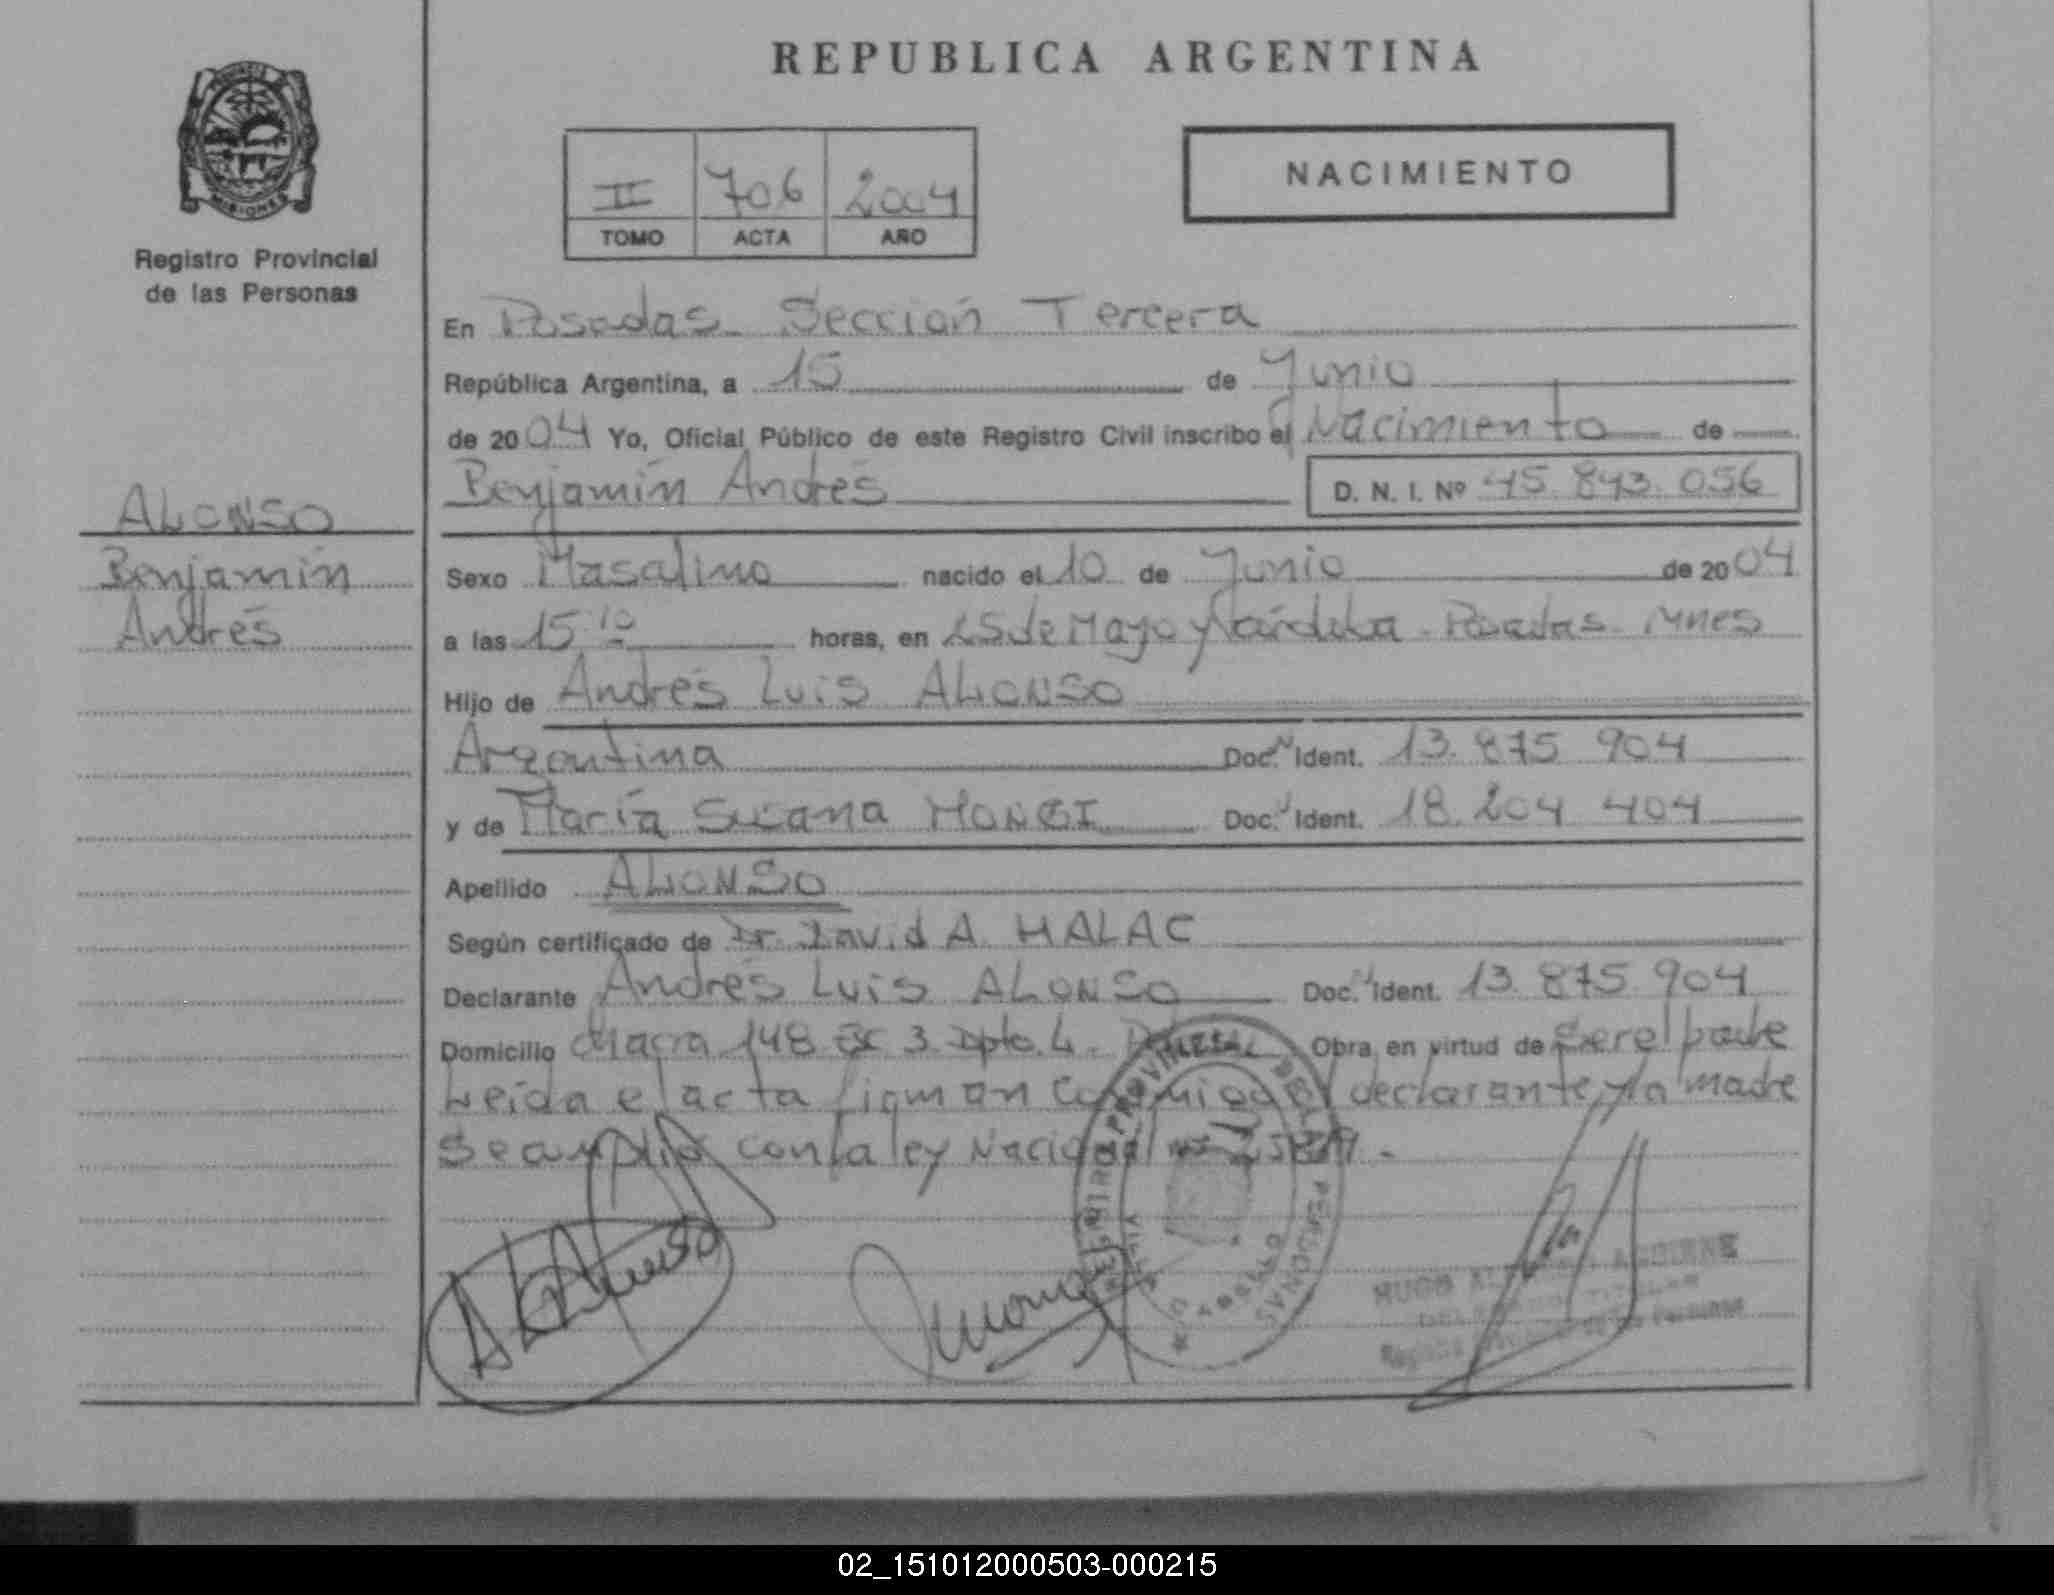 REPUBLICA ARGENTINA
MISIONES
Registro Provincial
de las Personas
II 706 2004
TOMO ACTA AÑO
NACIMIENTO
En Posadas Sección Tercera
República Argentina, a 15 de Junio
de 2004 Yo, Oficial Público de este Registro Civil inscribo el Nacimiento de
Benjamín Andrés D. N. I. Nº 45.843.056
ALONSO
Benjamín
Andrés
Sexo Masculino nacido el 10 de Junio de 2004
a las 15 10 horas, en 25 de Mayo y Córdoba. Posadas. Mnes
Hijo de Andrés Luis ALONSO
Argentina Doc. Ident. 13.875.904
y de María Susana Doc. Ident. 18.204.404
Apellido ALONSO
Según certificado de Dr. David A. MALAC
Declarante Andrés Luis ALONSO Doc. Ident. 13.875.904
Domicilio Chacra 148 3 Dpto. 4. Obra en virtud de Ser el padre
Leída el acta firman conmigo el declarante y la madre
Se cumplió con la ley Nacional
REGISTRO PROVINCIAL DE LAS PERSONAS
VILLA CABELLO
HUGO AGUIRRE
de las Personas
02_151012000503-000215